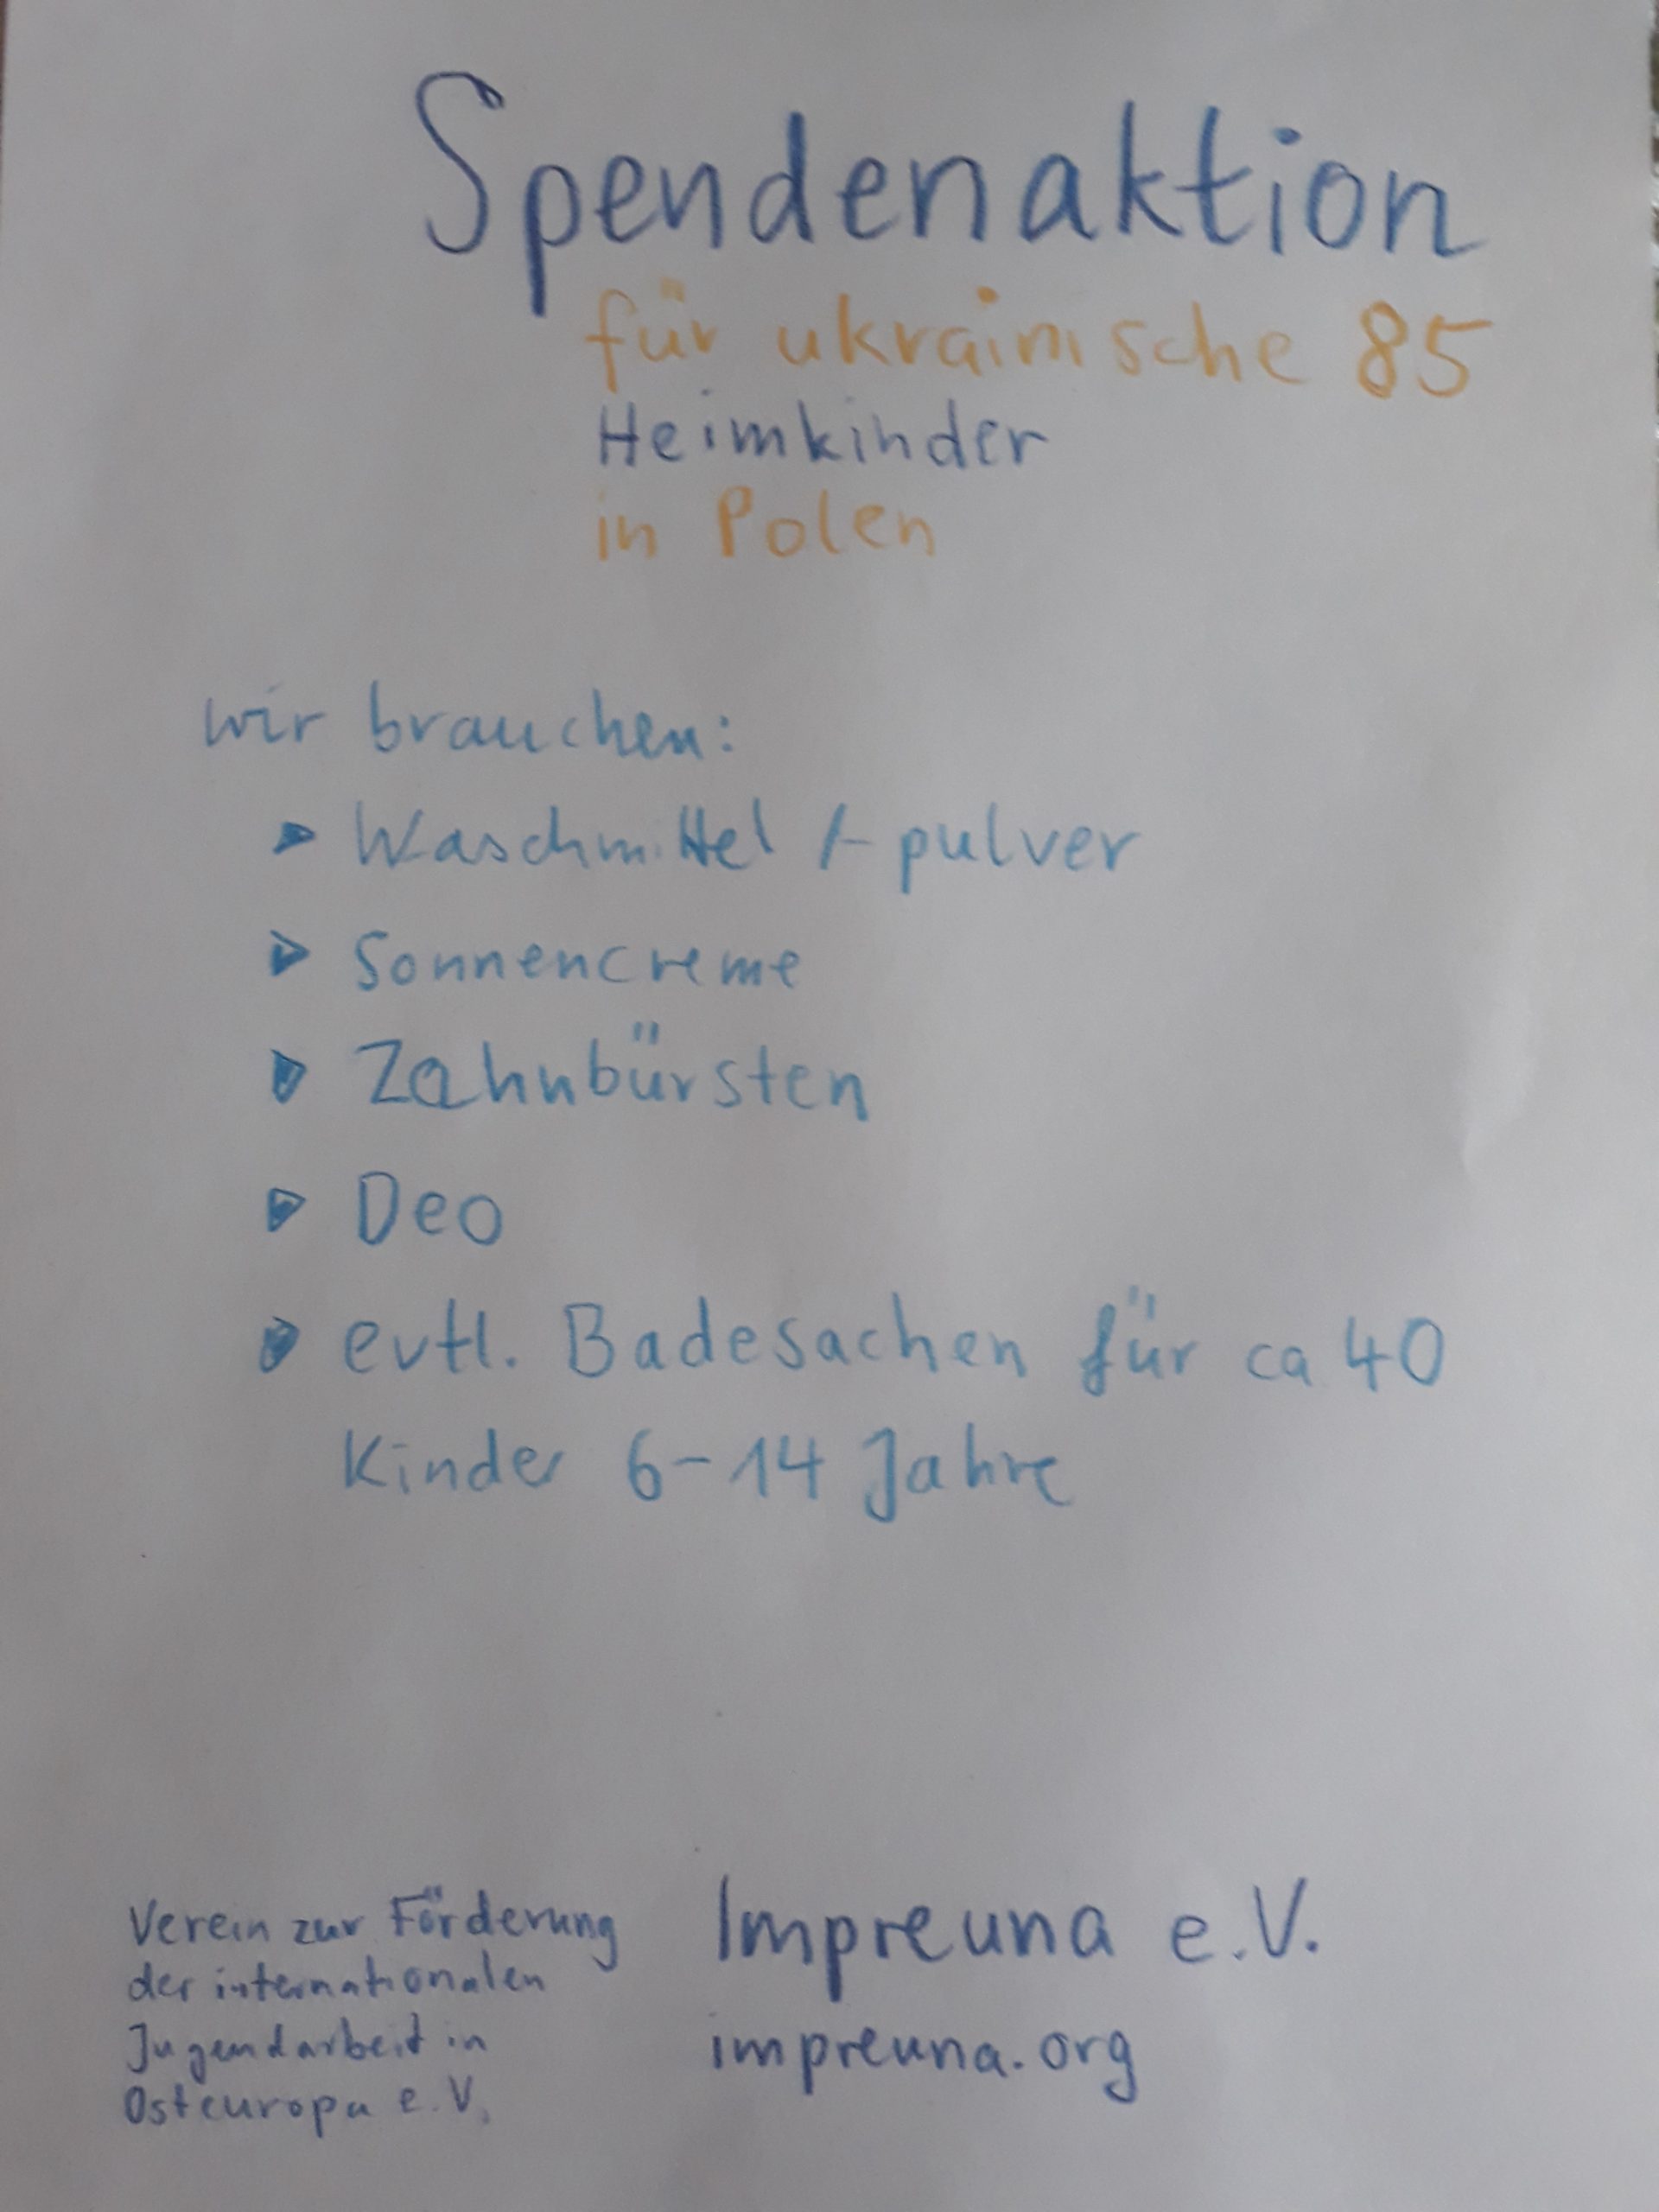 Spendenaktion
für ukrainische 85
Heimkinder
in Polen
wir brauchen:
▸ Waschmittel /-pulver
▸ Sonnencreme
▸ Zahnbürsten
▸ Deo
▸ evtl. Badesachen für ca 40
Kinder 6-14 Jahre
Verein zur Förderung
der internationalen
Jugendarbeit in
Osteuropa e.V.
Impreuna e.V.
impreuna.org